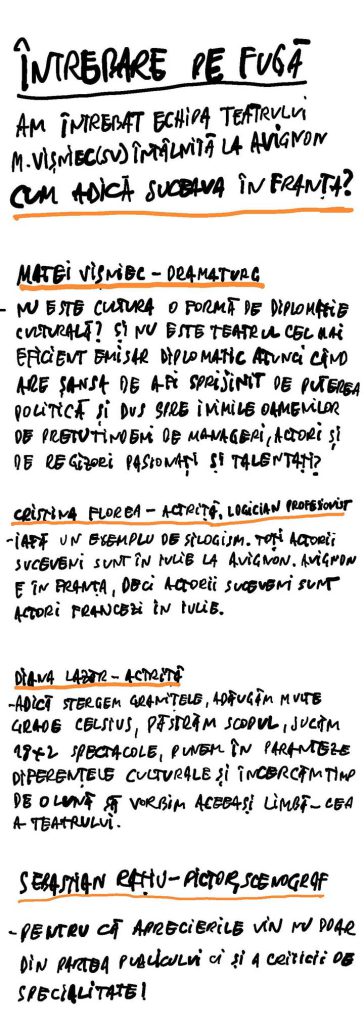 ÎNTREBARE PE FUGĂ
AM ÎNTREBAT ECHIPA TEATRULUI
M.VIȘNIEC(SV) ÎNTÂLNITĂ LA AVIGNON
CUM ADICĂ SUCEAVA ÎN FRANȚA?
MATEI VIȘNIEC - DRAMATURG
- NU ESTE CULTURA O FORMĂ DE DIPLOMAȚIE
CULTURALĂ? ȘI NU ESTE TEATRUL CEL MAI
EFICIENT EMISAR DIPLOMATIC ATUNCI CÂND
ARE ȘANSA DE A FI SPRIJINIT DE PUTEREA
POLITICĂ ȘI DUS SPRE INIMILE OAMENILOR
DE PRETUTINDENI DE MANAGERI, ACTORI ȘI
DE REGIZORI PASIONAȚI ȘI TALENTAȚI?
CRISTINA FLOREA - ACTRIȚĂ, LOGICIAN PROFESIONIST
- IATĂ UN EXEMPLU DE SILOGISM. TOȚI ACTORII
SUCEVENI SUNT ÎN IULIE LA AVIGNON. AVIGNON
E ÎN FRANȚA, DECI ACTORII SUCEVENI SUNT
ACTORI FRANCEZI ÎN IULIE.
DIANA LAZĂR - ACTRIȚĂ
- ADICĂ ȘTERGEM GRANIȚELE, ADĂUGĂM MULTE
GRADE CELSIUS, PĂSTRĂM SCOPUL, JUCĂM
18+2 SPECTACOLE, PUNEM ÎN PARANTEZE
DIFERENȚELE CULTURALE ȘI ÎNCERCĂM TIMP
DE O LUNĂ SĂ VORBIM ACEEAȘI LIMBĂ - CEA
A TEATRULUI.
SEBASTIAN RAȚIU - PICTOR, SCENOGRAF
- PENTRU CĂ APRECIERILE VIN NU DOAR
DIN PARTEA PUBLICULUI CI ȘI A CRITICII DE
SPECIALITATE!